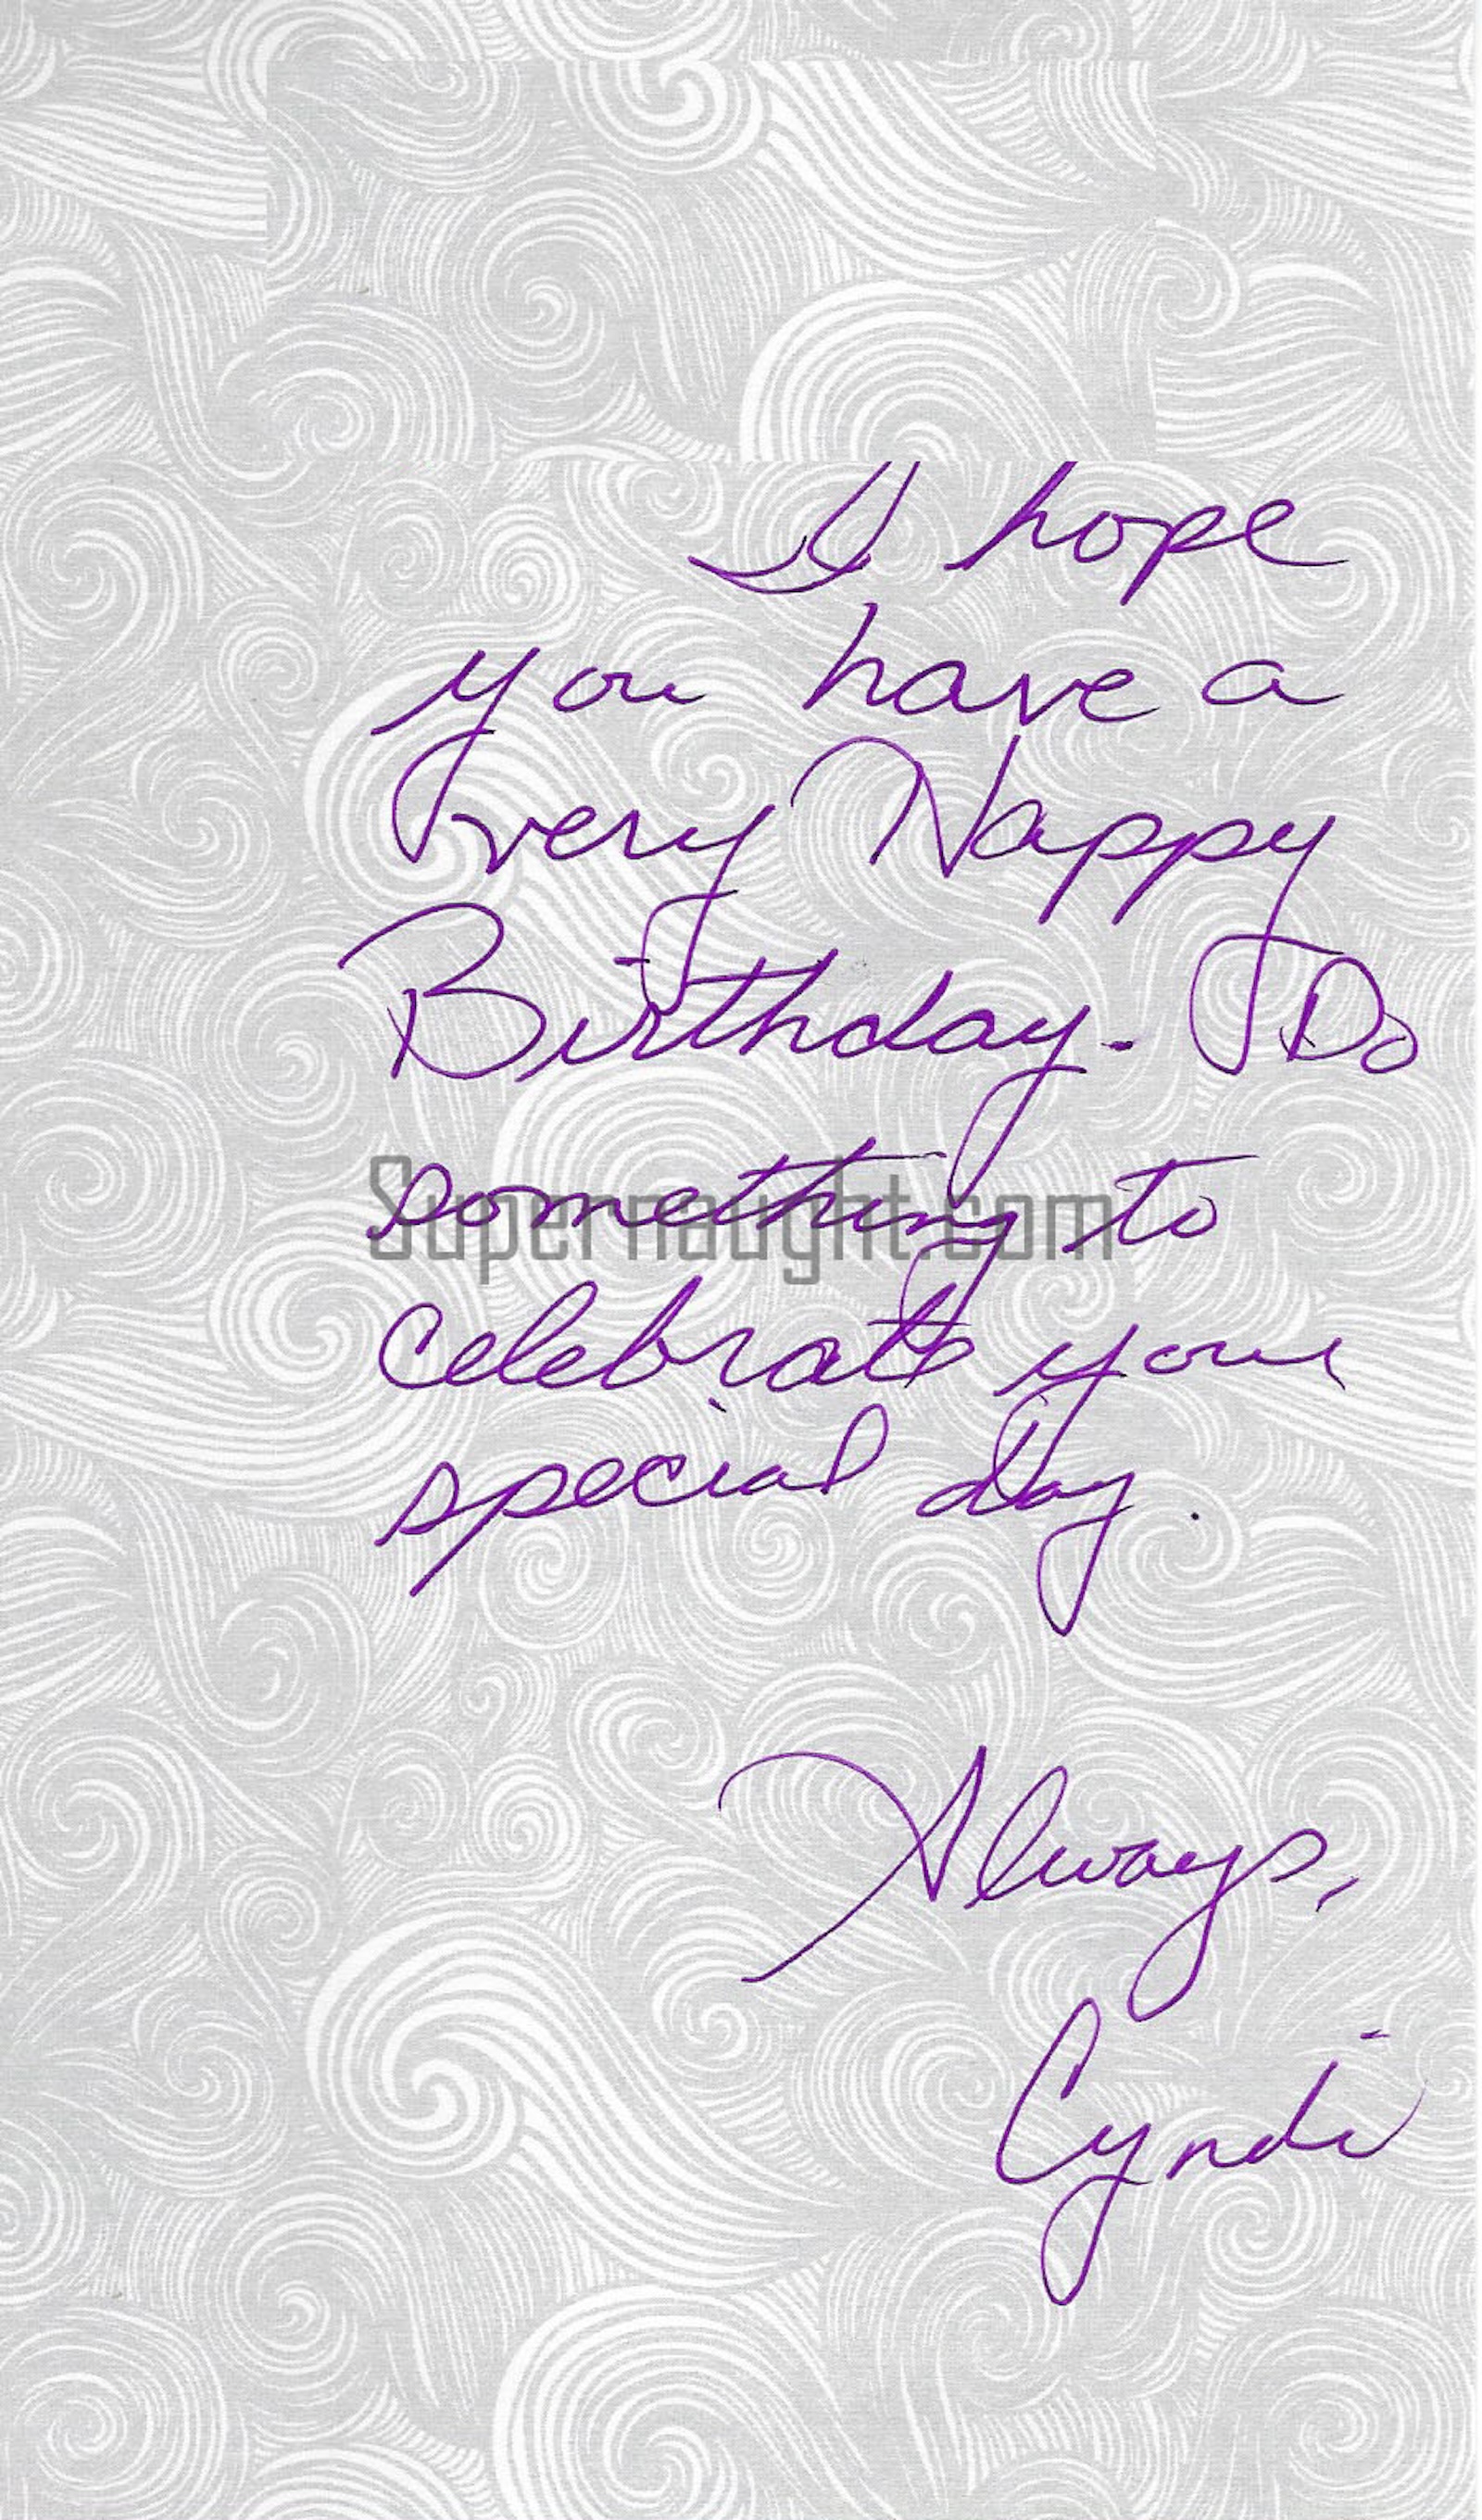 I hope
you have a
very Happy
Birthday. Do
something to
Supernaught.com
celebrate your
special day.
Always,
Cyndi